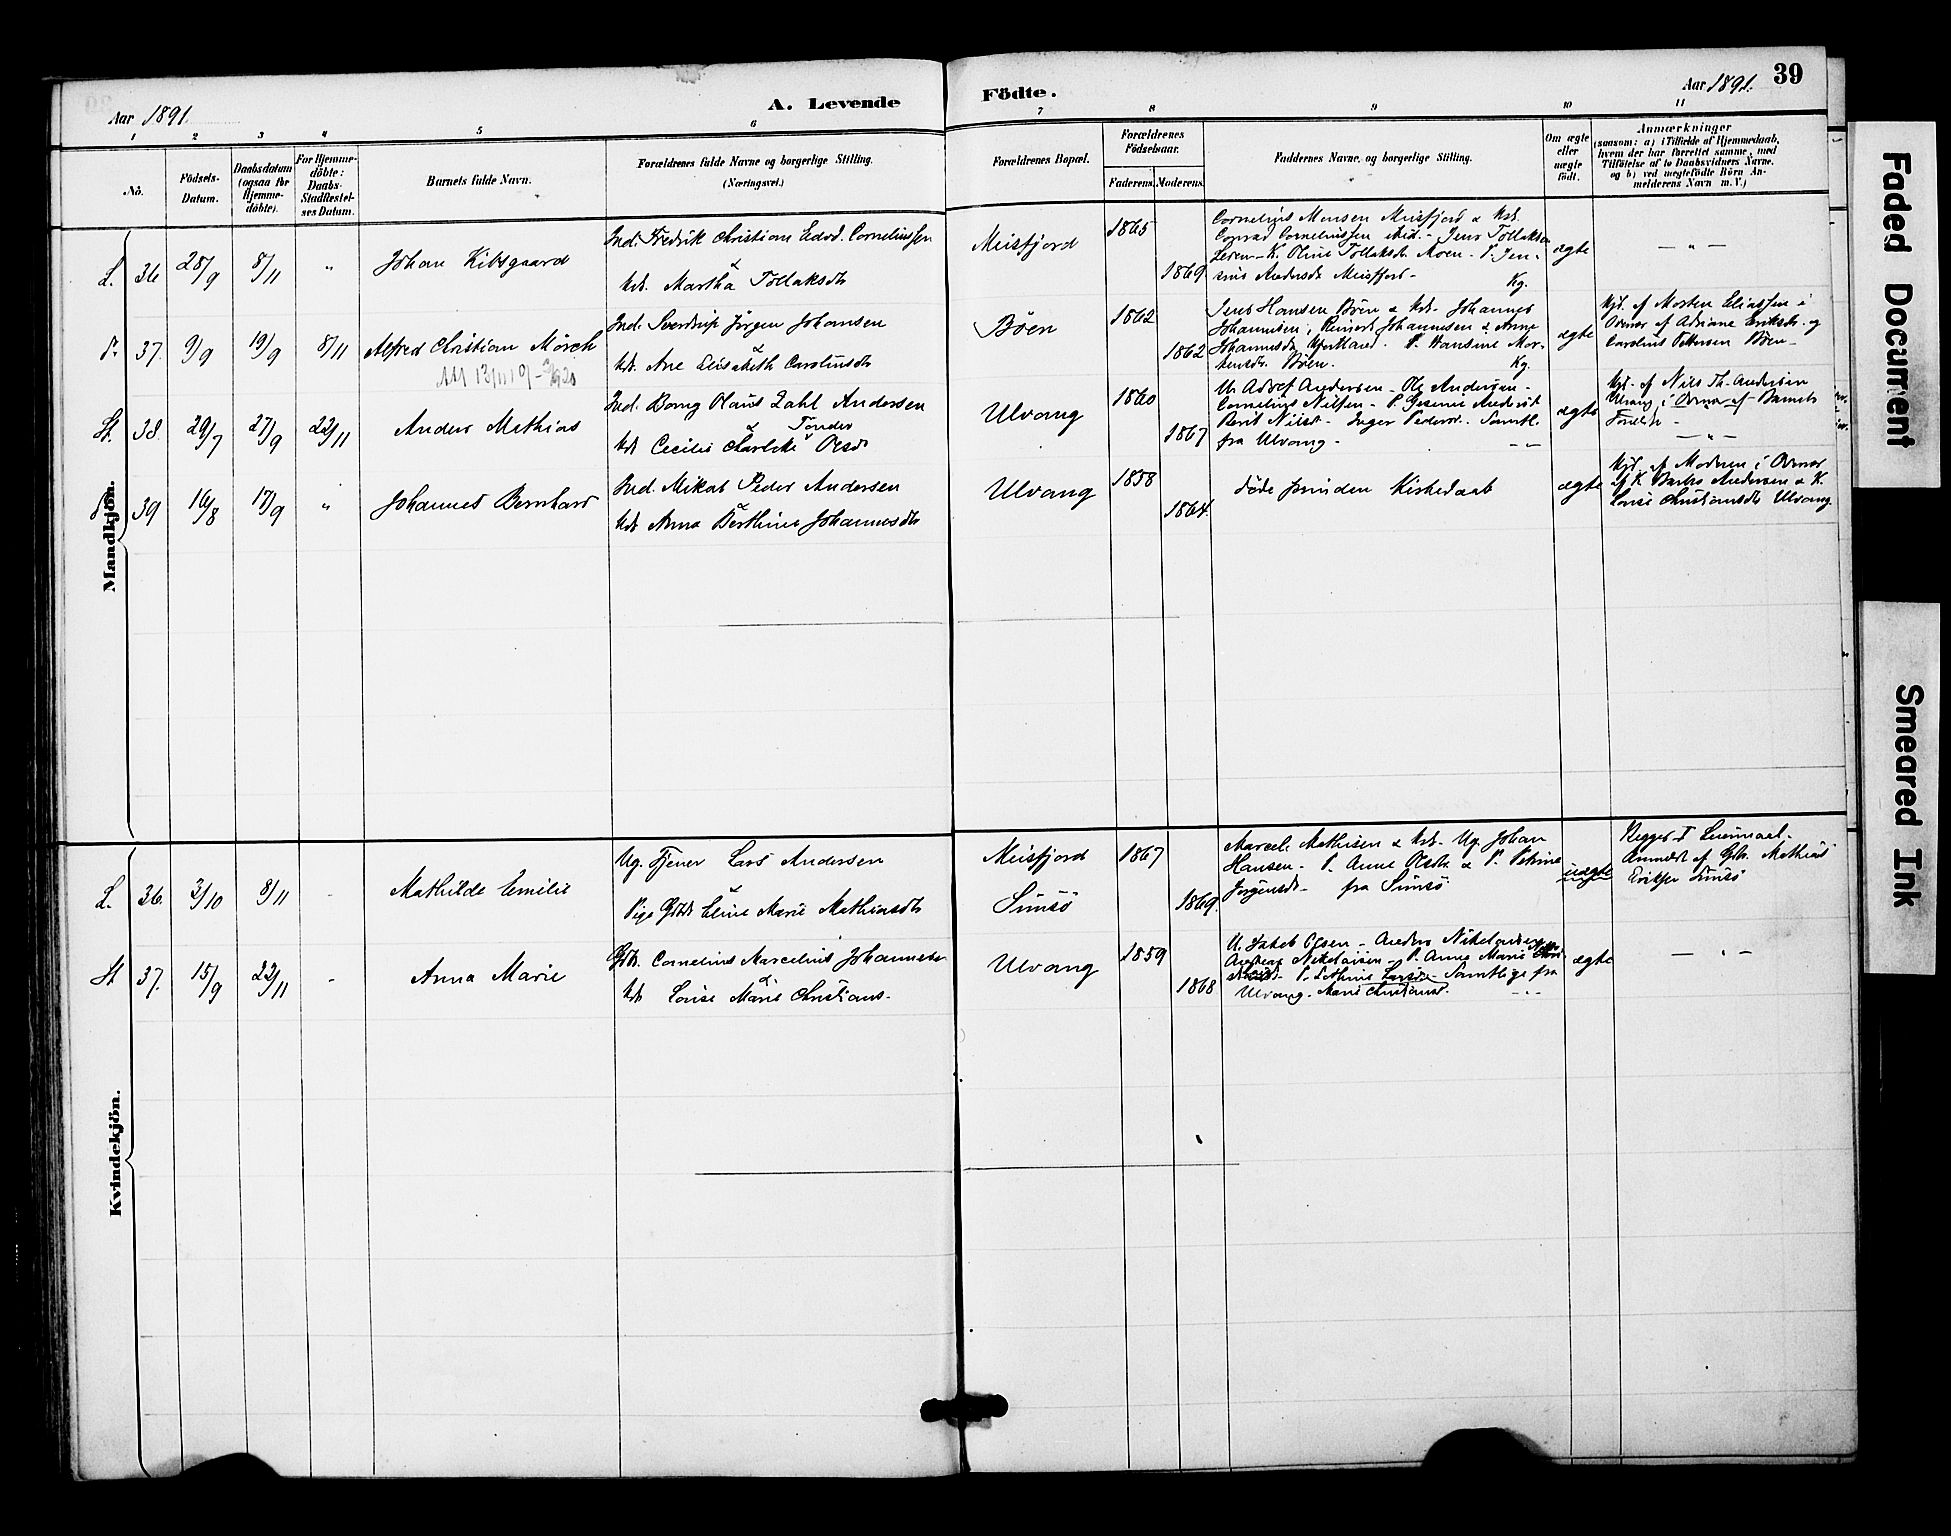 39
Aar 1891.
A. Levende Födte.
Aar 1891.
1 2 3 4 5 6 7 8 9 10 11
No.
Födsels-Datum.
Daabsdatum (ogsaa for Hjemme-döbte).
For Hjemme-döbte: Daabs-Stadfæstel-ses Datum.
Barnets fulde Navn.
Forældrenes fulde Navne og borgerlige Stilling.
(Næringsvei.)
Forældrenes Bopæl.
Forældrenes Födselsaar.
Faderens. Moderens.
Faddernes Navne, og borgerlige Stilling.
Om ægte eller uægte födt.
Anmærkninger
(saasom: a) i Tilfælde af Hjemmedaab,
hvem der har forrettet samme, med
Tilföielse af to Daabsvidners Navne,
og b) ved uægtefödte Börn An-
melderens Navn m. V.)
Mandkjön.
L. 36 28/9 8/11 " Johan Kibsgaard
Ind. Fredrik Christian Edvd. Corneliussen
&
kst. Martha Tollaksdtr
Meisfjord 1865 1869
Cornelius Monsen Meisfjord & kst.
Conrad Corneliussen ibid. - Jens Tollaksen
Leren - K. Oline Tollaksdtr. Moen - P. Jen-
sine Andersdr Meisfjord -
Kg.
ægte
— " —
P. 37. 9/9 19/9 8/11 Alfred Christian Mörch
Ind. Sverdrup Jörgen Johansen
&
kst. Ane Elisabeth Carolinsdtr
Böen 1862 1862
Jens Hansen Böen & kst. Johannes
Johannesen, Reinert Johannesen & Anne
Johannesdtr. P. Hansine Mor-
tensdtr. Böen.
Kg.
ægte
Hjd. af Morten Eliassen i
Overvær af Adriane Eriksdtr. og
Carolius Pettersen Böen -
St. 38. 29/7 27/9 22/11 Anders Mathias
Ind. Borng Olaus Zahl Andersen
&
kst Cecilie Charlotte Tönder Olsdr
Ulvang 1860 1867
U. Adolf Andersen - Ole Andersen -
Cornelius Nilsen - P. Gesine Andersdt
Berit Nilsd - Inger Pedersd. Samtl.
fra Ulvang -
ægte
Hjd. af Nils Th. Andersen
Ulvang i Overvær af Barnets
Foreldre -
— " —
39 16/8 17/9 " Johannes Bernhard
Ind. Mikal Peder Andersen
&
kst Anna Berthine Johannesdtr
Ulvang 1858 1864.
döde forinden Kirkedaab
ægte
Hjd. af Moderen i Overvær
af K. Andersen & K.
Louise Christiansdtr Ulvang.
Kvindekjön.
L. 36. 3/10 8/11 - Mathilde Emilie
Ug. Tjener Lars Andersen
&
Pige Eline Marie Mathiasdtr
Meisfjord
Sunsö
1867 1869.
Marcel. Mathisen & kst. Ug. Johan
Hansen - P. Anne Olsdtr. & P. Petrine
Jörgensdt - fra Sunsö
uægte
Begges I Leiermaal.
Anmeldt af Gbr. Mathias
Eriksen Sunsö
St 37. 15/9 22/11 - Anna Marie
Gbr. Cornelius Marcelius Johannesen
&
kst Louise Marie Christians-
Ulvang 1859 1868
U. Jakob Olsen - Anders Nikolaisen
Andreas Nikolaisen - P. Anne Marie
P. Lethine Larsdtr - Samtlige fra
Ulvang. Marie Christiansd.
ægte
— " —
Faded Document
Smeared Ink